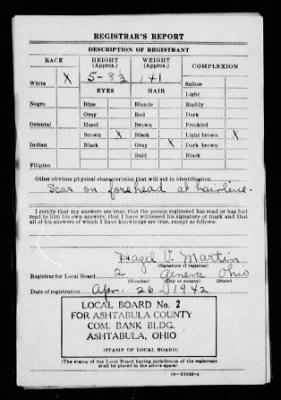 REGISTRAR'S REPORT
DESCRIPTION OF REGISTRANT
RACE HEIGHT (Approx.) WEIGHT (Approx.) COMPLEXION
White X 5-8½ 141 Sallow
EYES HAIR Light
Negro Blue Blonde Ruddy
Gray Red Dark
Oriental Hazel Brown Freckled
Brown X Black Light brown X
Indian Black Gray X Dark brown
Bald Black
Filipino
Other obvious physical characteristics that will aid in identification
Scar on forehead at hairline.
I certify that my answers are true; that the person registered has read or has had
read to him his own answers; that I have witnessed his signature or mark and that
all of his answers of which I have knowledge are true, except as follows:
Hazel V. Martin
(Signature of registrar)
Registrar for Local Board 2 Geneva Ohio
(Number) (City or county) (State)
Date of registration Apr. 26, 1942
LOCAL BOARD No. 2
FOR ASHTABULA COUNTY
COM. BANK BLDG.
ASHTABULA, OHIO
(STAMP OF LOCAL BOARD)
(The stamp of the Local Board having jurisdiction of the registrant
shall be placed in the above space)